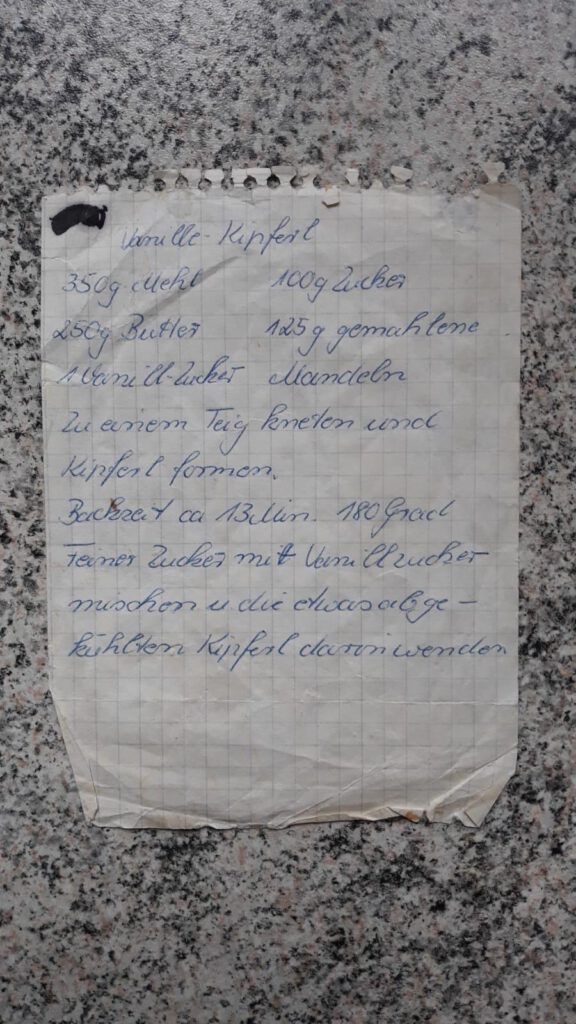 Vanille-Kipferl
350g Mehl 100g Zucker
250g Butter 125g gemahlene
1 Vanill-Zucker Mandeln
Zu einem Teig kneten und
Kipferl formen.
Backzeit ca 13 Min. 180 Grad
Feiner Zucker mit Vanillzucker
mischen u die etwas abge-
kühlten Kipferl darin wenden